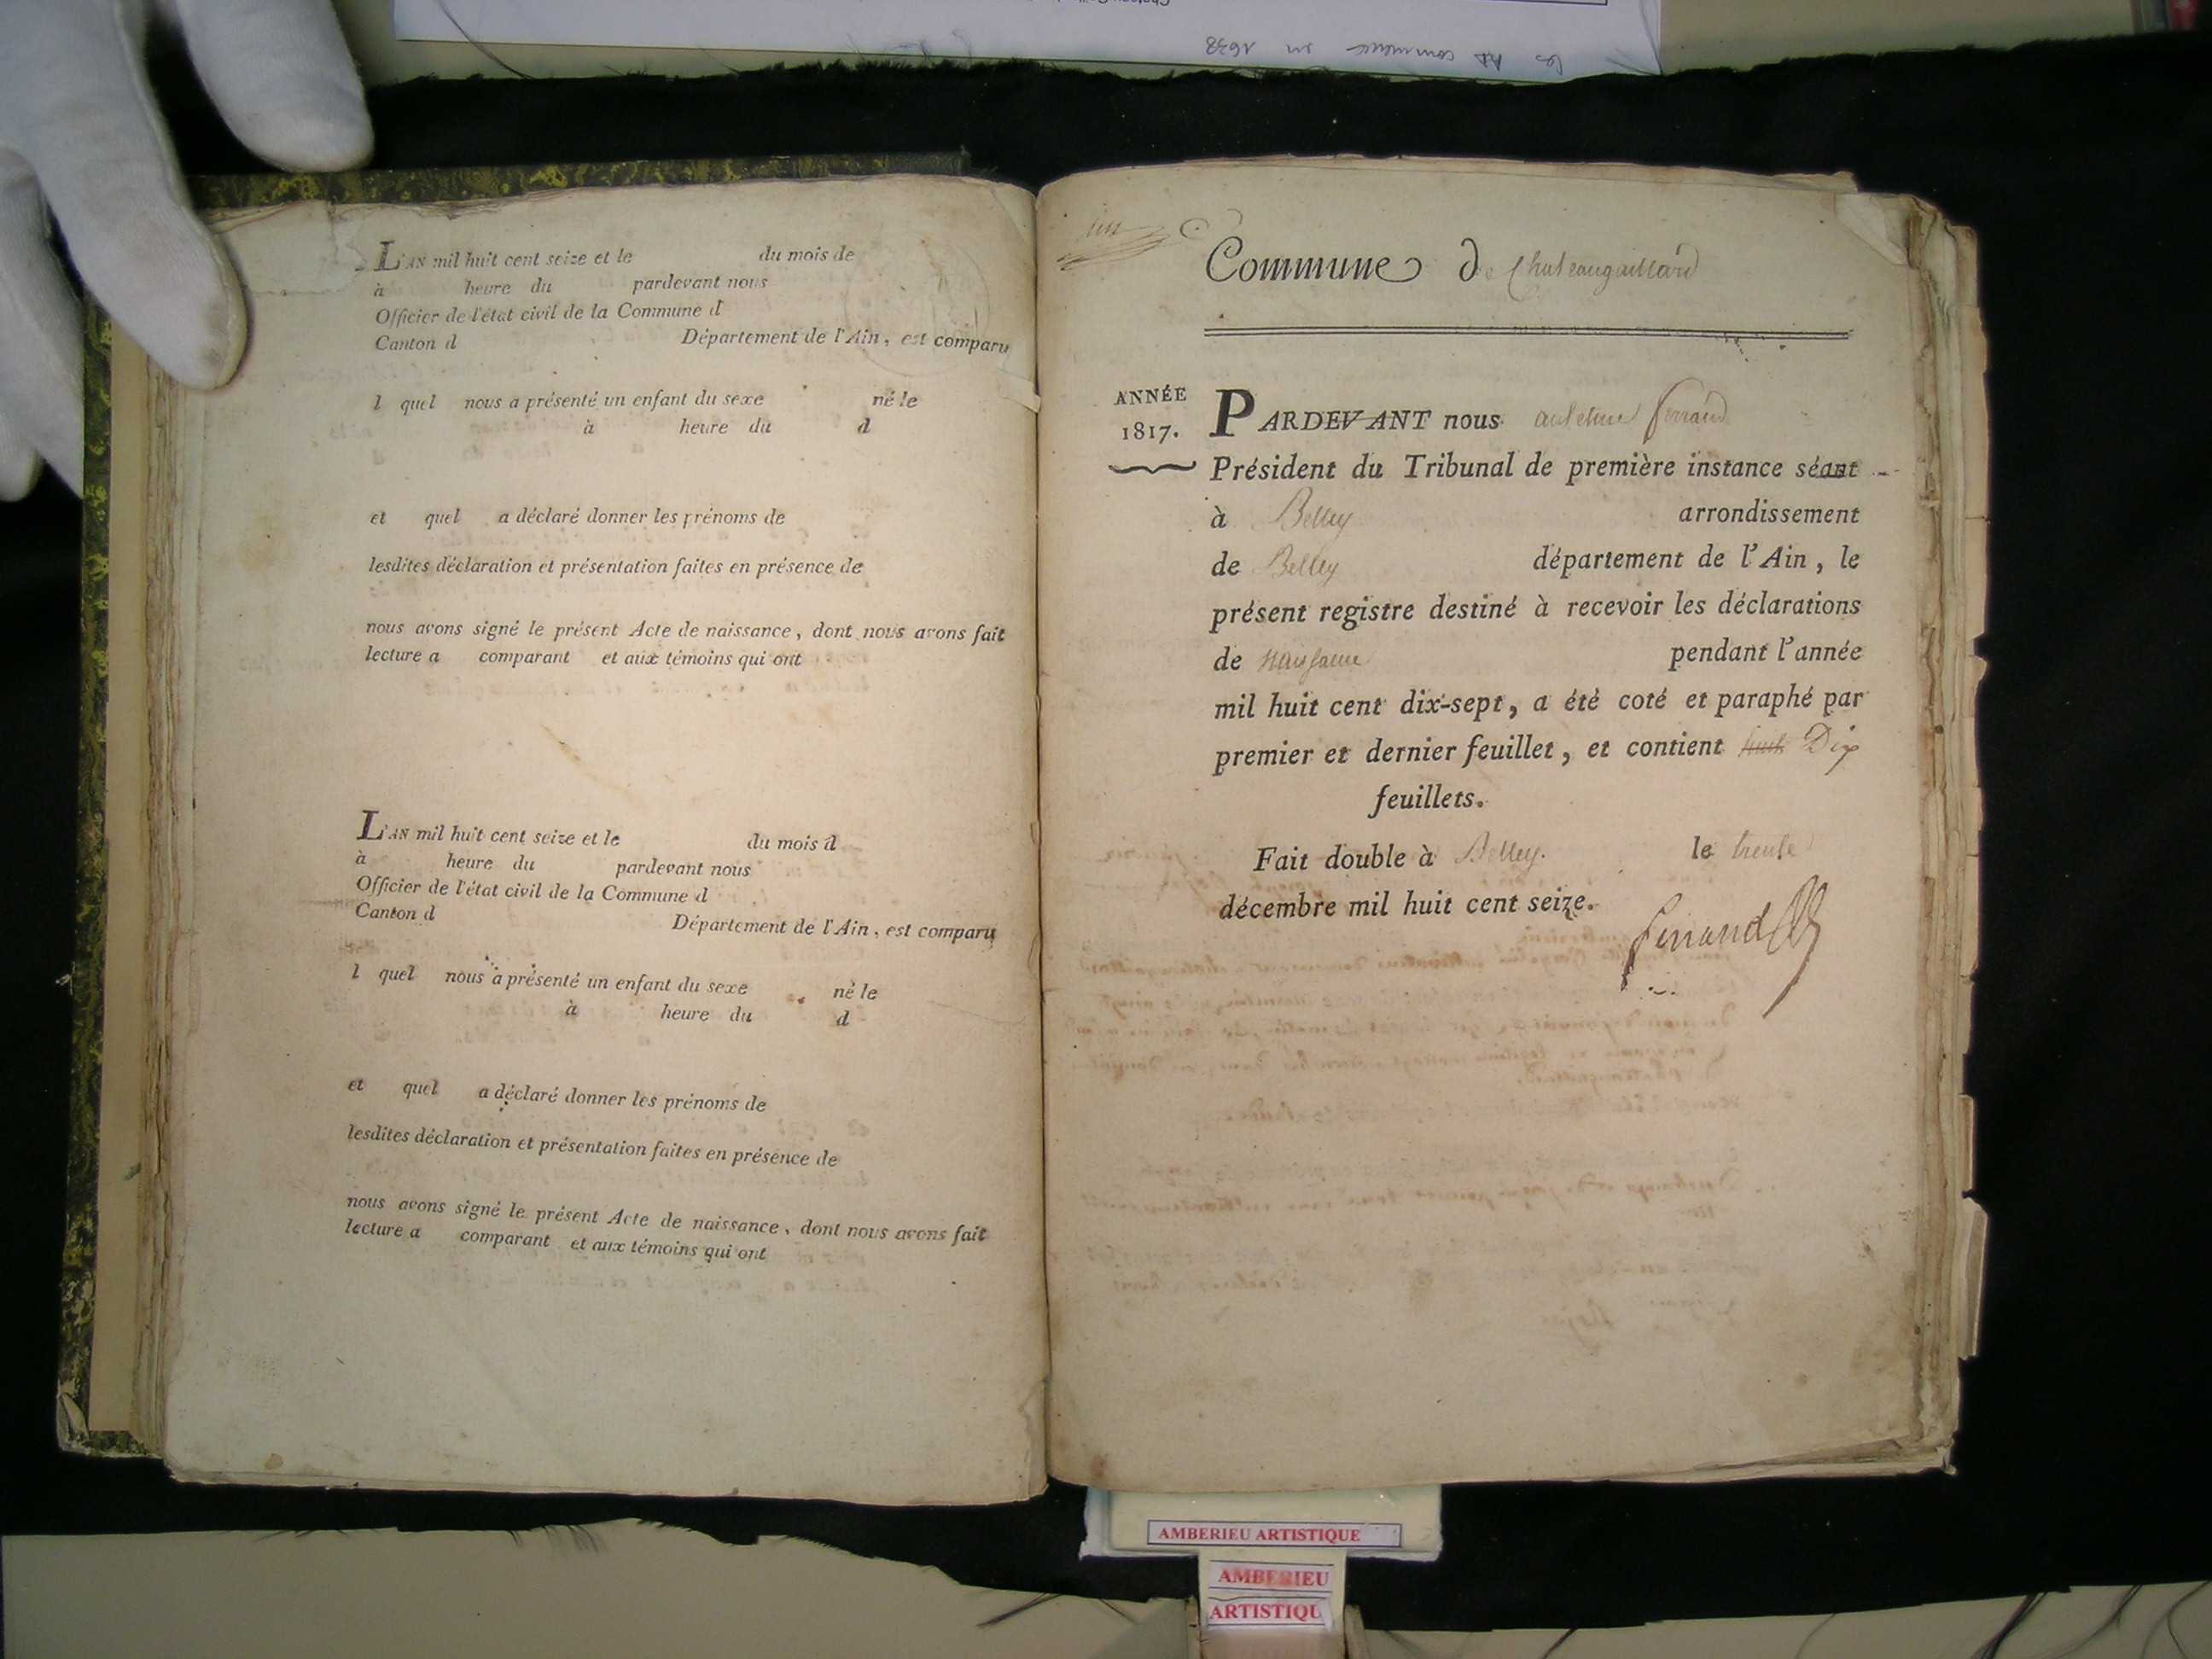 les commence en 1638
L'AN mil huit cent seize et le du mois de
à heure du pardevant nous
Officier de l'état civil de la Commune d
Canton d Département de l'Ain, est comparu
l quel nous a présenté un enfant du sexe né le
à heure du d
et quel a déclaré donner les prénoms de
lesdites déclaration et présentation faites en présence de
nous avons signé le présent Acte de naissance, dont nous avons fait
lecture a comparant et aux témoins qui ont
L'AN mil huit cent seize et le du mois d
à heure du pardevant nous
Officier de l'état civil de la Commune d
Canton d Département de l'Ain, est comparu
l quel nous a présenté un enfant du sexe né le
à heure du d
et quel a déclaré donner les prénoms de
lesdites déclaration et présentation faites en présence de
nous avons signé le présent Acte de naissance, dont nous avons fait
lecture a comparant et aux témoins qui ont
Commune de Chateaugaillard
ANNÉE
1817.
PARDEVANT nous antelme ferrand
Président du Tribunal de première instance séant
à Belley arrondissement
de Belley département de l'Ain, le
présent registre destiné à recevoir les déclarations
de naissance pendant l'année
mil huit cent dix-sept, a été coté et paraphé par
premier et dernier feuillet, et contient huit Dix
feuillets.
Fait double à Belley. le trente
décembre mil huit cent seize.
ferrand
AMBERIEU ARTISTIQUE
AMBERIEU
ARTISTIQU